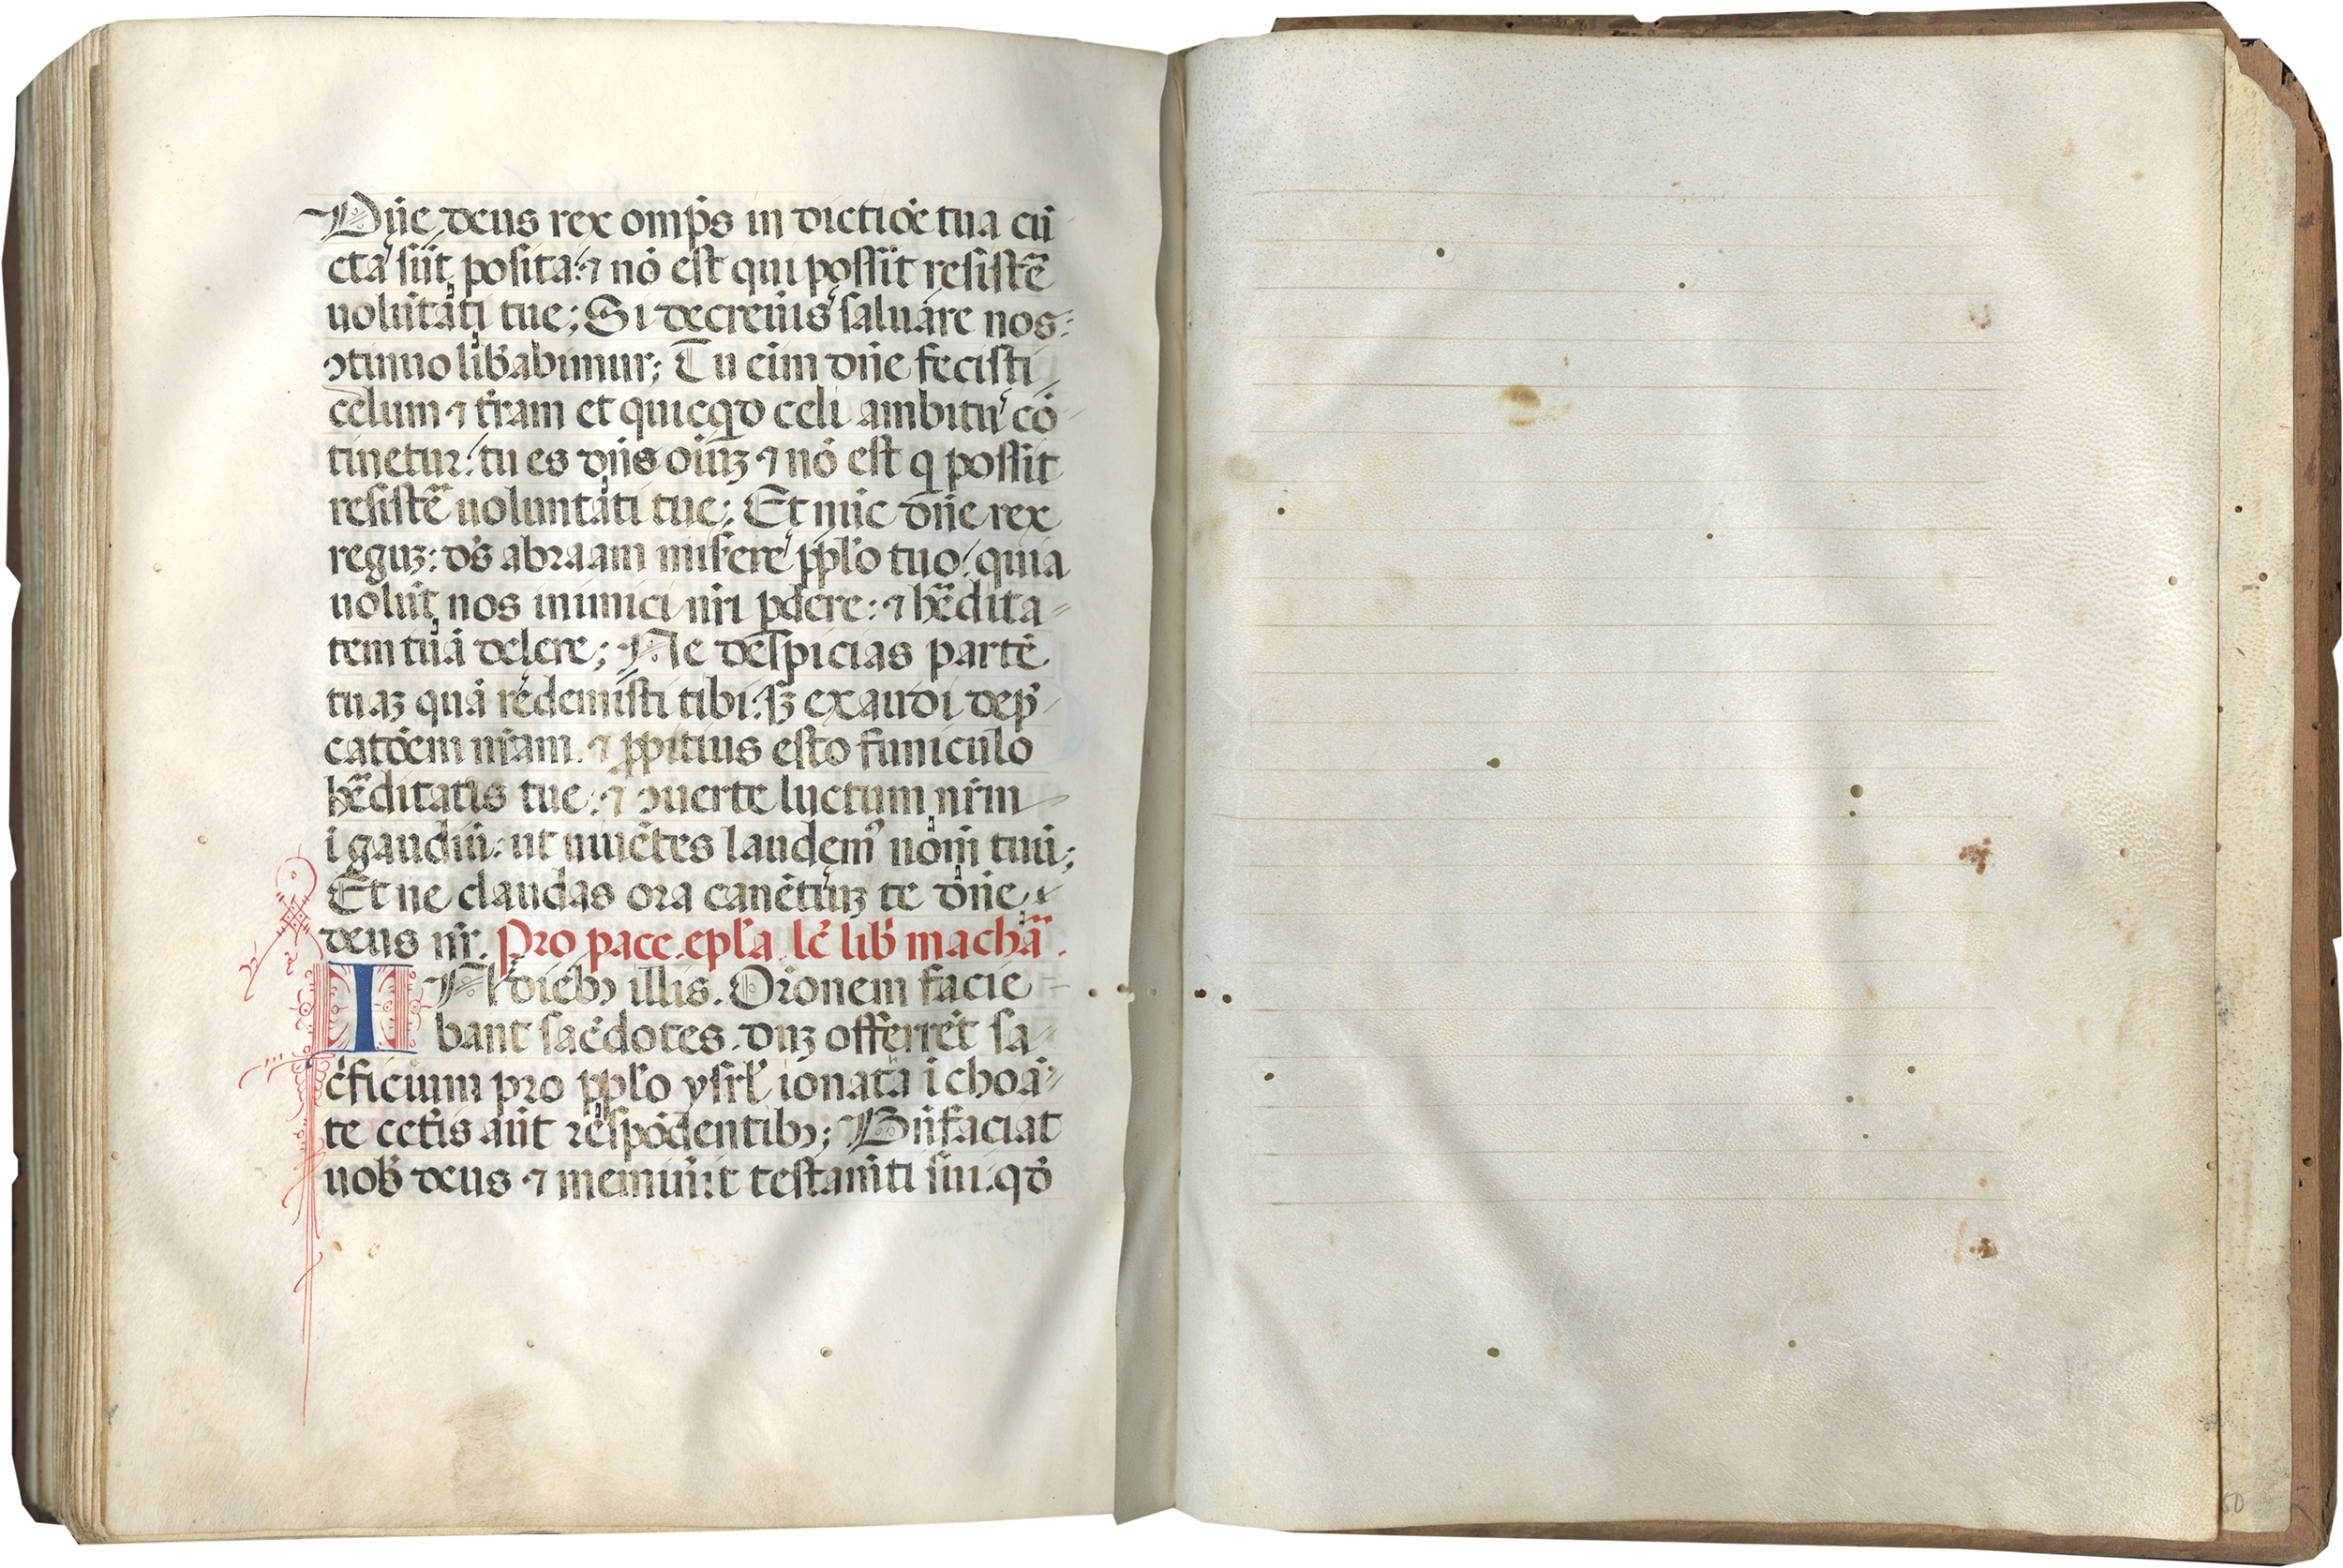 Dn̄e deus rex omp̄s in dictiōe tua cū
cta sūt posita: ⁊ nō est qui possit resistē
uolūtati tue; Si decreuis saluare nos:
ꝯtinuo lib̄abimur; Tu eim dn̄e fecisti
celum ⁊ t̄ram et quicqd celi ambitu cō
tinetur: tu es dn̄s oiūꝫ ⁊ nō est q possit
resistē uoluntati tue; Et nūc dn̄e rex
reguꝫ: ds̄ abraam misere pp̄lo tuo: quia
uolūt nos inimici nr̄i ꝑdere: ⁊ hēdita=
tem tuā delere; Ne despicias partē
tuaꝫ quā redemisti tibi: sꝫ exaudi dep̄
catōem nr̄am. ⁊ ꝓpitius esto funiculo
hēditatis tue: ⁊ ꝯuerte luctum nr̄m
ī gaudiū: ut uiuētes laudemꝰ nōni tuū;
Et ne claudas ora canētiuꝫ te dn̄e
deus nr̄. Pro pace. epl̄a. lc̄ lib̄ machā.
IN dieb; illis. Orōnem facie
bant sac̄dotes. duꝫ offerrēt sa=
c̄ficium pro pp̄lo ysrl̄ ionata ī choā=
te cet̄is aūt respōdentib;; Bn̄faciat
uob̄ deus ⁊ meminīt testam̄ti sui. qd̄
60